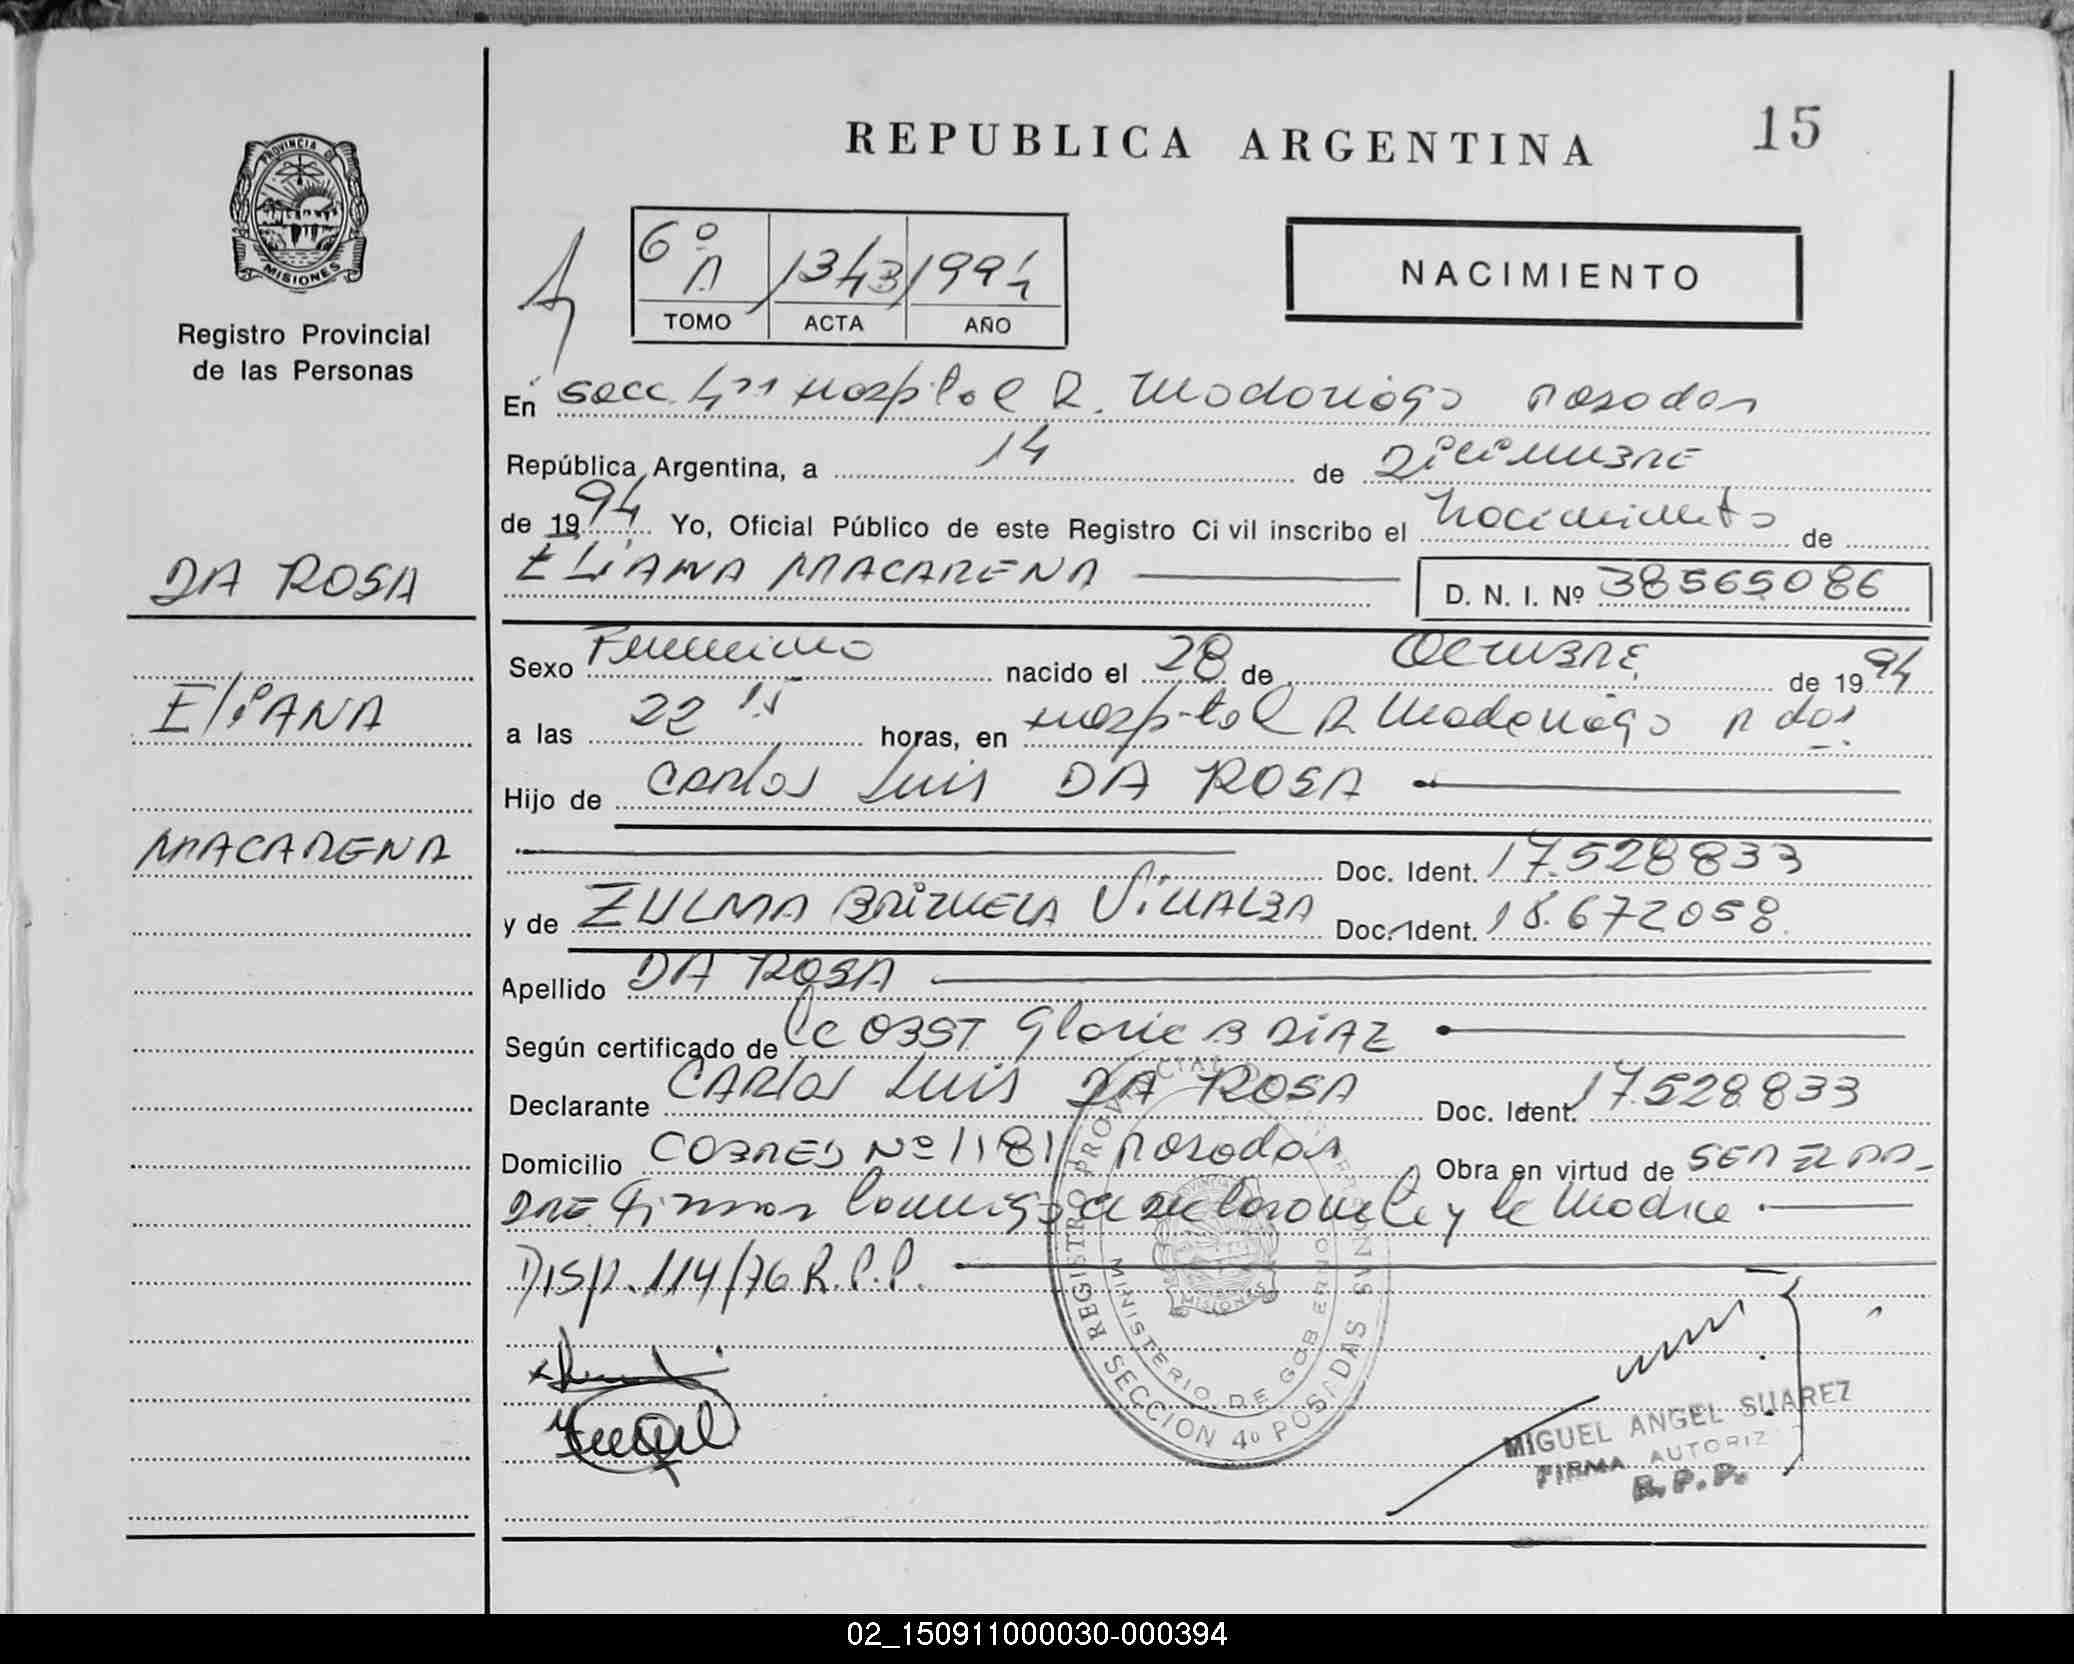 REPUBLICA ARGENTINA
15
PROVINCIA DE
MISIONES
Registro Provincial
de las Personas
6º A 1343 1994
TOMO ACTA AÑO
NACIMIENTO
En Secc 4ta Hospital R. Madariaga Posadas
República Argentina, a 14 de Diciembre
de 1994 Yo, Oficial Público de este Registro Civil inscribo el Nacimiento de
ELIANA MACARENA D. N. I. Nº 38565086
DA ROSA
ELIANA
MACARENA
Sexo Femenino nacido el 28 de Octubre de 1994
a las 22 15 horas, en Hospital R Madariaga Pdas.
Hijo de Carlos Luis DA ROSA
Doc. Ident. 17.528833
y de ZULMA BRIZUELA VILLALBA Doc. Ident. 18.672058
Apellido DA ROSA
Según certificado de OBST Gloria B DIAZ
Declarante CARLOS Luis DA ROSA Doc. Ident. 17.528833
Domicilio COBRES Nº 1181 Posadas Obra en virtud de SER EL PA-
DRE Firman conmigo el declarante y la Madre
Disp. 114/76 R.P.P.
REGISTRO PROVINCIAL DE LAS PERSONAS
MINISTERIO DE GOBIERNO
MISIONES
SECCION 4º POSADAS
MIGUEL ANGEL SUAREZ
FIRMA AUTORIZ
R.P.P.
02_150911000030-000394